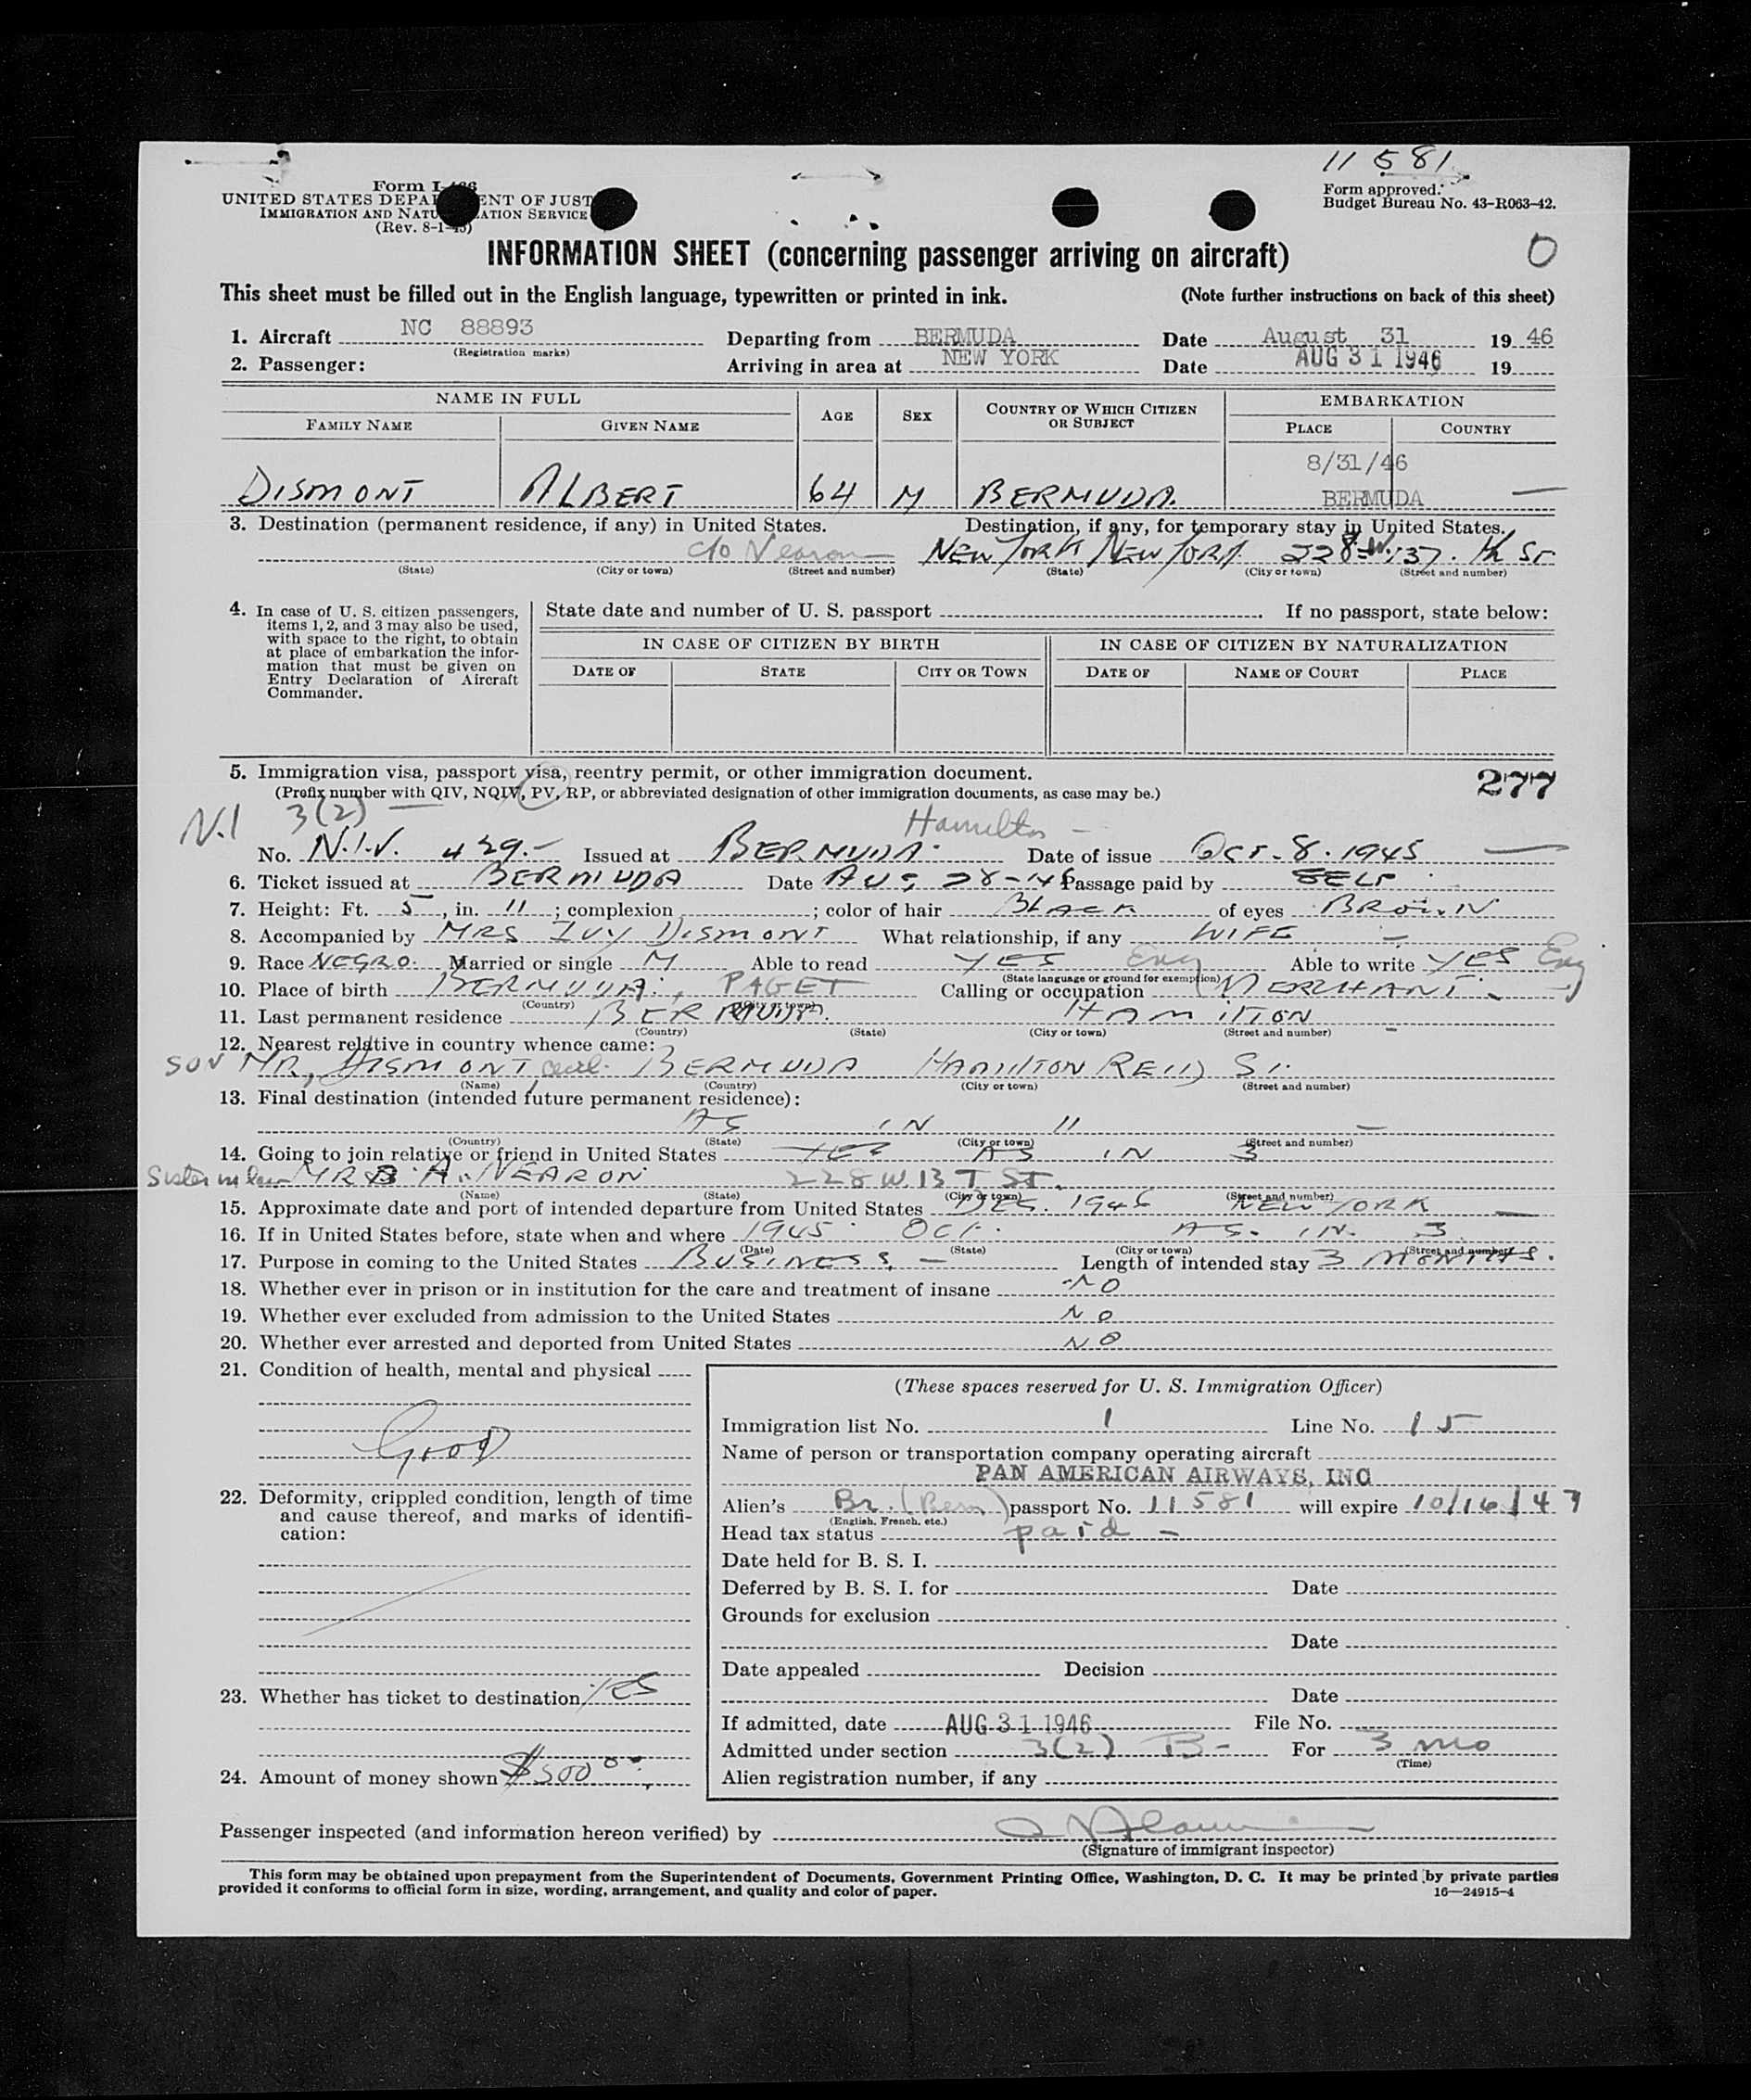 11581
Form I-466
UNITED STATES DEPARTMENT OF JUST
IMMIGRATION AND NATURALIZATION SERVICE
(Rev. 8-1-45)
Form approved.
Budget Bureau No. 43-R063-42.
INFORMATION SHEET (concerning passenger arriving on aircraft)
0
This sheet must be filled out in the English language, typewritten or printed in ink. (Note further instructions on back of this sheet)
1. Aircraft NC 88893 Departing from BERMUDA Date August 31 19 46
(Registration marks)
2. Passenger: Arriving in area at NEW YORK Date AUG 31 1946 19
NAME IN FULL AGE SEX COUNTRY OF WHICH CITIZEN OR SUBJECT EMBARKATION
FAMILY NAME GIVEN NAME PLACE COUNTRY
8/31/46
DISMONT ALBERT 64 M BERMUDA. BERMUDA —
3. Destination (permanent residence, if any) in United States. Destination, if any, for temporary stay in United States.
c/o Nearon NEW YORK NEW YORK 228 W. 137. th ST
(State) (City or town) (Street and number) (State) (City or town) (Street and number)
4. In case of U. S. citizen passengers, items 1, 2, and 3 may also be used, with space to the right, to obtain at place of embarkation the information that must be given on Entry Declaration of Aircraft Commander.
State date and number of U. S. passport . If no passport, state below:
IN CASE OF CITIZEN BY BIRTH IN CASE OF CITIZEN BY NATURALIZATION
DATE OF STATE CITY OR TOWN DATE OF NAME OF COURT PLACE
5. Immigration visa, passport visa, reentry permit, or other immigration document.
(Prefix number with QIV, NQIV, PV, RP, or abbreviated designation of other immigration documents, as case may be.)
277
N.I 3(2) — Hamilton —
No. N.I.V. 439.- Issued at BERMUDA. Date of issue Oct. 8. 1945 —
6. Ticket issued at BERMUDA Date AUG 28-46 Passage paid by SELF
7. Height: Ft. 5, in. 11; complexion ; color of hair BLACK of eyes BROWN
8. Accompanied by MRS IVY DISMONT What relationship, if any WIFE —
9. Race NEGRO. Married or single M Able to read YES Eng Able to write YES Eng
(State language or ground for exemption)
10. Place of birth BERMUDA, PAGET Calling or occupation MERCHANT.
(Country) (City or town)
11. Last permanent residence BERMUDA. HAMILTON
(Country) (State) (City or town) (Street and number)
12. Nearest relative in country whence came:
SON MR, DISMONT BERMUDA HAMILTON REID ST.
(Name) (Country) (City or town) (Street and number)
13. Final destination (intended future permanent residence):
AS IN 11 —
(Country) (State) (City or town) (Street and number)
14. Going to join relative or friend in United States YES AS IN 3
Sister in law MRS A. NEARON 228 W. 137 ST.
(Name) (State) (City or town) (Street and number)
15. Approximate date and port of intended departure from United States DEC. 1946 NEW YORK —
16. If in United States before, state when and where 1945 OCT. AS. IN. 3
(Date) (State) (City or town) (Street and number)
17. Purpose in coming to the United States BUSINESS. — Length of intended stay 3 MONTHS.
18. Whether ever in prison or in institution for the care and treatment of insane NO
19. Whether ever excluded from admission to the United States NO
20. Whether ever arrested and deported from United States NO
21. Condition of health, mental and physical
Good
22. Deformity, crippled condition, length of time and cause thereof, and marks of identification:
23. Whether has ticket to destination YES
24. Amount of money shown $500.00
(These spaces reserved for U. S. Immigration Officer)
Immigration list No. 1 Line No. 15
Name of person or transportation company operating aircraft
PAN AMERICAN AIRWAYS, INC
Alien's Br. (Berm) passport No. 11581 will expire 10/16/47
(English, French, etc.)
Head tax status paid —
Date held for B. S. I.
Deferred by B. S. I. for Date
Grounds for exclusion
Date
Date appealed Decision
Date
If admitted, date AUG 31 1946 File No.
Admitted under section 3(2) B- For 3 mo
(Time)
Alien registration number, if any
Passenger inspected (and information hereon verified) by
(Signature of immigrant inspector)
This form may be obtained upon prepayment from the Superintendent of Documents, Government Printing Office, Washington, D. C. It may be printed by private parties
provided it conforms to official form in size, wording, arrangement, and quality and color of paper. 16—24915-4